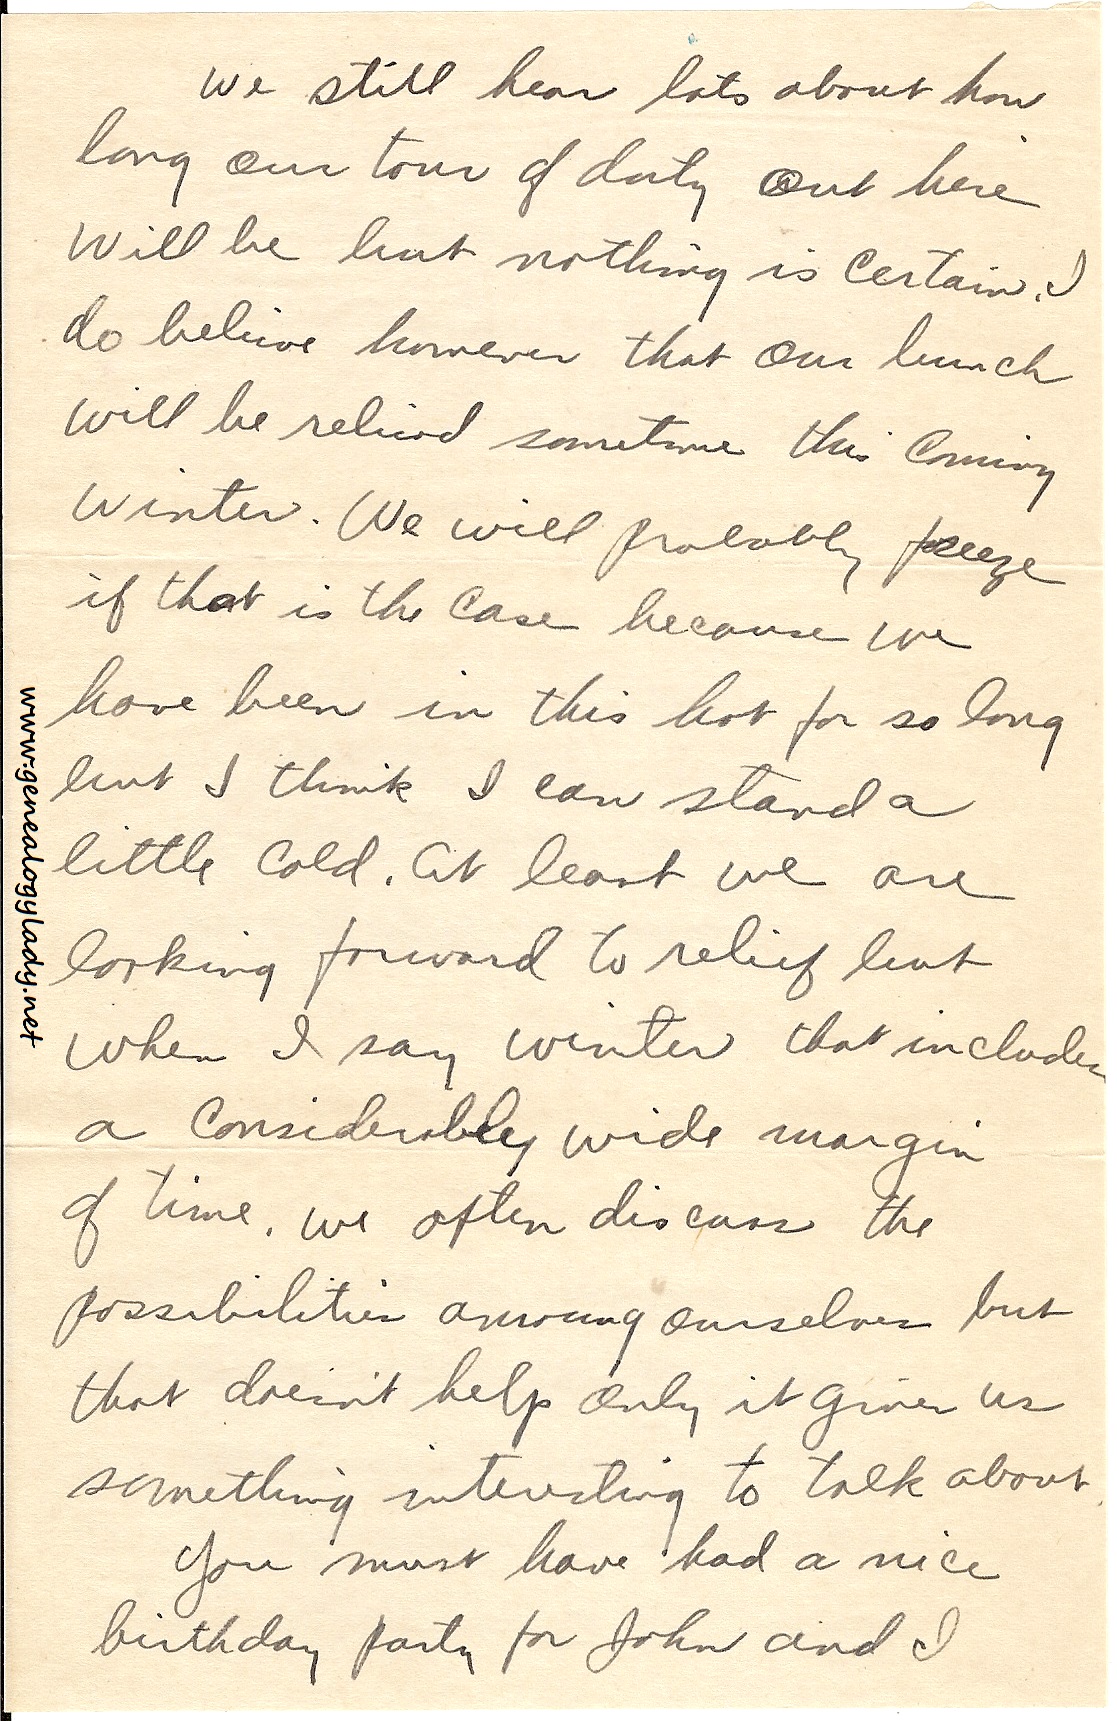 We still hear lots about how
long our tour of duty out here
will be but nothing is certain. I
do believe however that our bunch
will be relieved sometime this coming
winter. We will probably freeze
if that is the case because we
have been in this hot for so long
but I think I can stand a
little cold. At least we are
looking forward to relief but
when I say winter that includes
a considerably wide margin
of time. We often discuss the
possibilities among ourselves but
that doesn't help only it gives us
something interesting to talk about.
You must have had a nice
birthday party for John and I
www.genealogylady.net